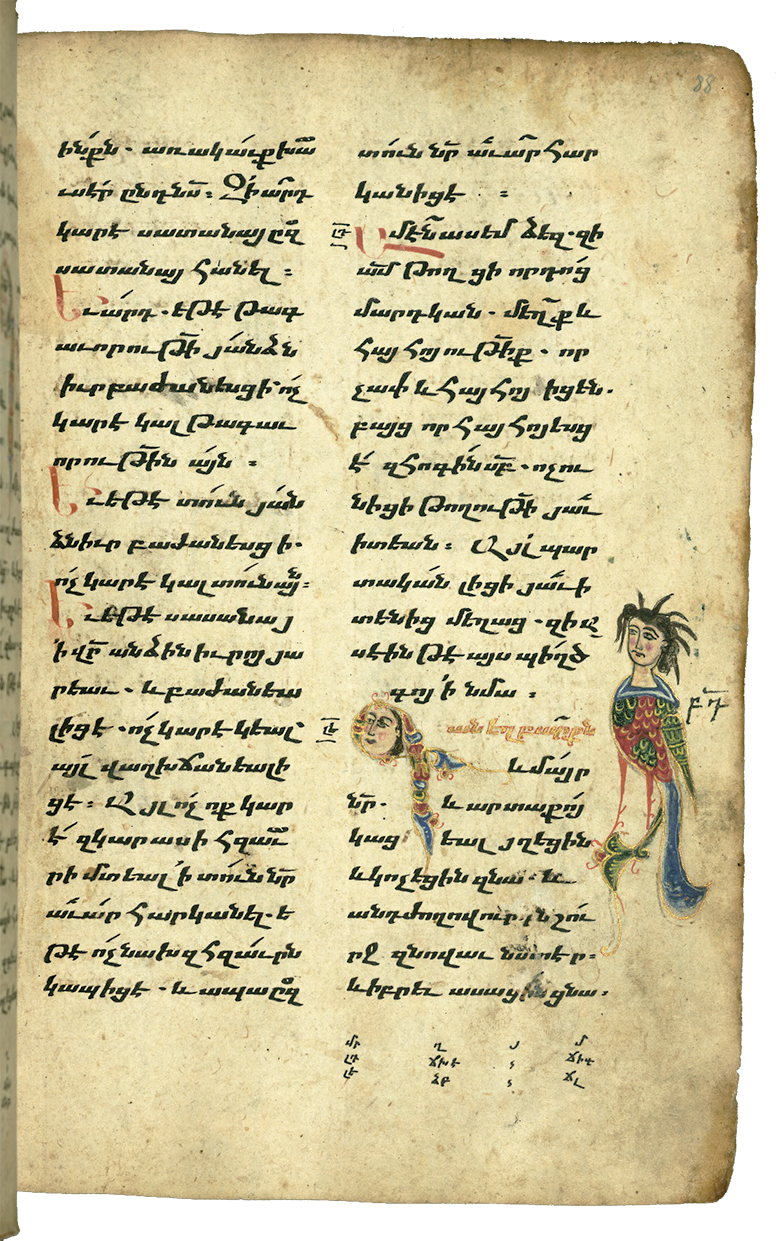 ինքն. առակաւք խաւ
սէր ընդ նս̅։ Զիա՞րդ
կարէ սատանայ ըզ
սատանայ հանել։
Եւ արդ. եթէ թագ
աւորութի̅ յանձն
իւր բաժանեսցի. ոչ
կարէ կալ թագաւ
որութի̅ն այն։
Եւ եթէ տուն յան
ձն իւր բաժանեսցի.
ոչ կարէ կալ տունն այն։
Եւ եթէ սատանայ
ի վր̅ անձին իւրոյ յա
րեաւ. և բաժանեա
լ իցէ. ոչ կարէ կեալ՝
այլ վախճանեալ ի
ցէ։ Այլ ոչ ոք կար
է զկարասի հզաւ
րի մտեալ ի տուն նր̅
աւար հարկանել. ե
թէ ոչ նախ զհզաւրն
կապիցէ. և ապա ըզ
տուն նր̅ աւար հար
կանիցէ ։
լդ Ամէն ասեմ ձեզ. զի
ամ̅ թողցի որդւոց
մարդկան. մեղք և
հայհոյութի̅ք. որ
չափ և հայհոյ իցեն.
բայց որ հայհոյեսց
է զհոգին սբ̅. ոչ ու
նիցի թողութի̅ յաւ
իտեան։ Այլ պար
տական լիցի յաւի
տենից մեղաց. զի ա
սէին թէ այս պիղծ
գոյ ի նմա։
լե
և մայր
նր̅. և արտաքոյ
կացեալ յղեցին
և կոչեցին զնա. և
անդ ժողովուրդն շու
րջ զնովաւ նստէր։
և իբրև ասացին ցնա.
88